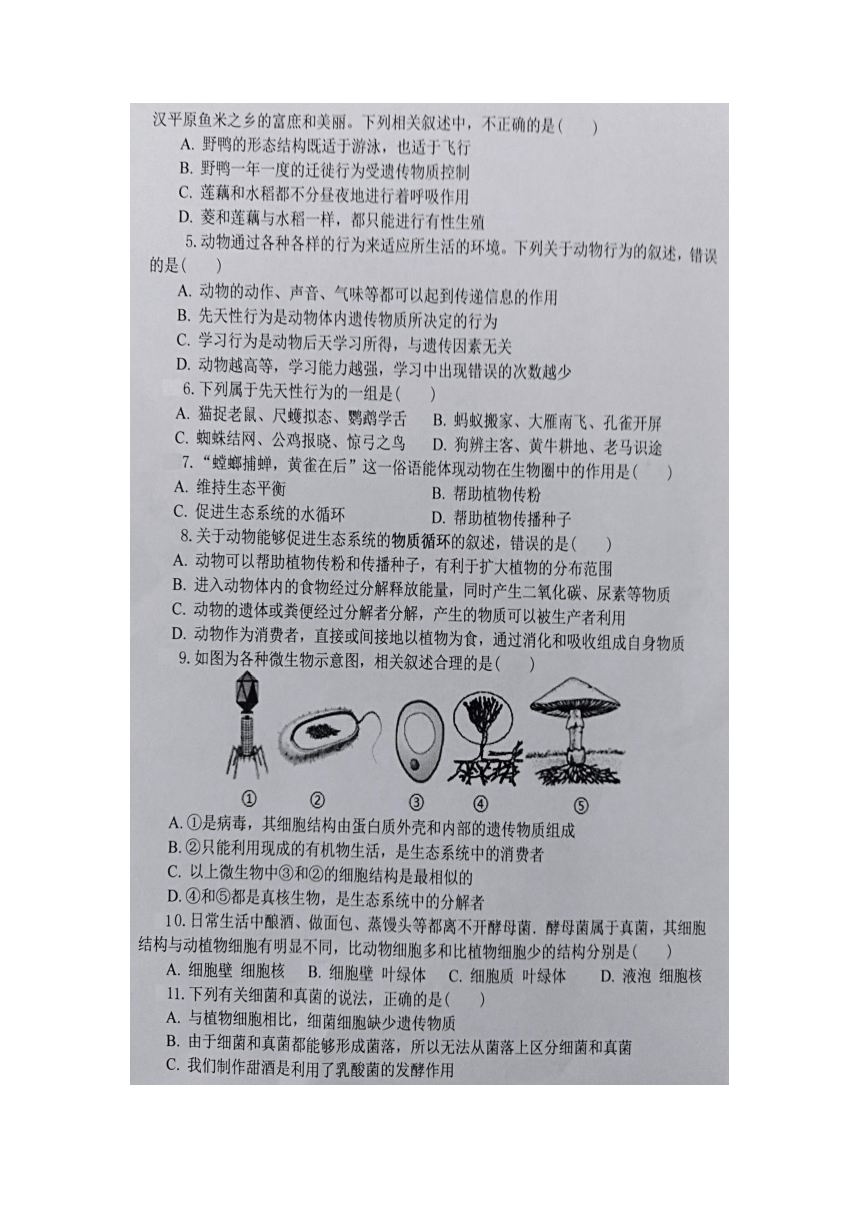 汉平原鱼米之乡的富庶和美丽。下列相关叙述中，不正确的是(　　)
A. 野鸭的形态结构既适于游泳，也适于飞行
B. 野鸭一年一度的迁徙行为受遗传物质控制
C. 莲藕和水稻都不分昼夜地进行着呼吸作用
D. 菱和莲藕与水稻一样，都只能进行有性生殖
5. 动物通过各种各样的行为来适应所生活的环境。下列关于动物行为的叙述，错误
的是(　　)
A. 动物的动作、声音、气味等都可以起到传递信息的作用
B. 先天性行为是动物体内遗传物质所决定的行为
C. 学习行为是动物后天学习所得，与遗传因素无关
D. 动物越高等，学习能力越强，学习中出现错误的次数越少
6. 下列属于先天性行为的一组是(　　)
A. 猫捉老鼠、尺蠖拟态、鹦鹉学舌　B. 蚂蚁搬家、大雁南飞、孔雀开屏
C. 蜘蛛结网、公鸡报晓、惊弓之鸟　D. 狗辨主客、黄牛耕地、老马识途
7. “螳螂捕蝉，黄雀在后”这一俗语能体现动物在生物圈中的作用是(　　)
A. 维持生态平衡　B. 帮助植物传粉
C. 促进生态系统的水循环　D. 帮助植物传播种子
8. 关于动物能够促进生态系统的物质循环的叙述，错误的是(　　)
A. 动物可以帮助植物传粉和传播种子，有利于扩大植物的分布范围
B. 进入动物体内的食物经过分解释放能量，同时产生二氧化碳、尿素等物质
C. 动物的遗体或粪便经过分解者分解，产生的物质可以被生产者利用
D. 动物作为消费者，直接或间接地以植物为食，通过消化和吸收组成自身物质
9. 如图为各种微生物示意图，相关叙述合理的是(　　)
①　②　③　④　⑤
A. ①是病毒，其细胞结构由蛋白质外壳和内部的遗传物质组成
B. ②只能利用现成的有机物生活，是生态系统中的消费者
C. 以上微生物中③和②的细胞结构是最相似的
D. ④和⑤都是真核生物，是生态系统中的分解者
10. 日常生活中酿酒、做面包、蒸馒头等都离不开酵母菌．酵母菌属于真菌，其细胞
结构与动植物细胞有明显不同，比动物细胞多和比植物细胞少的结构分别是(　　)
A. 细胞壁 细胞核　B. 细胞壁 叶绿体　C. 细胞质 叶绿体　D. 液泡 细胞核
11. 下列有关细菌和真菌的说法，正确的是(　　)
A. 与植物细胞相比，细菌细胞缺少遗传物质
B. 由于细菌和真菌都能够形成菌落，所以无法从菌落上区分细菌和真菌
C. 我们制作甜酒是利用了乳酸菌的发酵作用